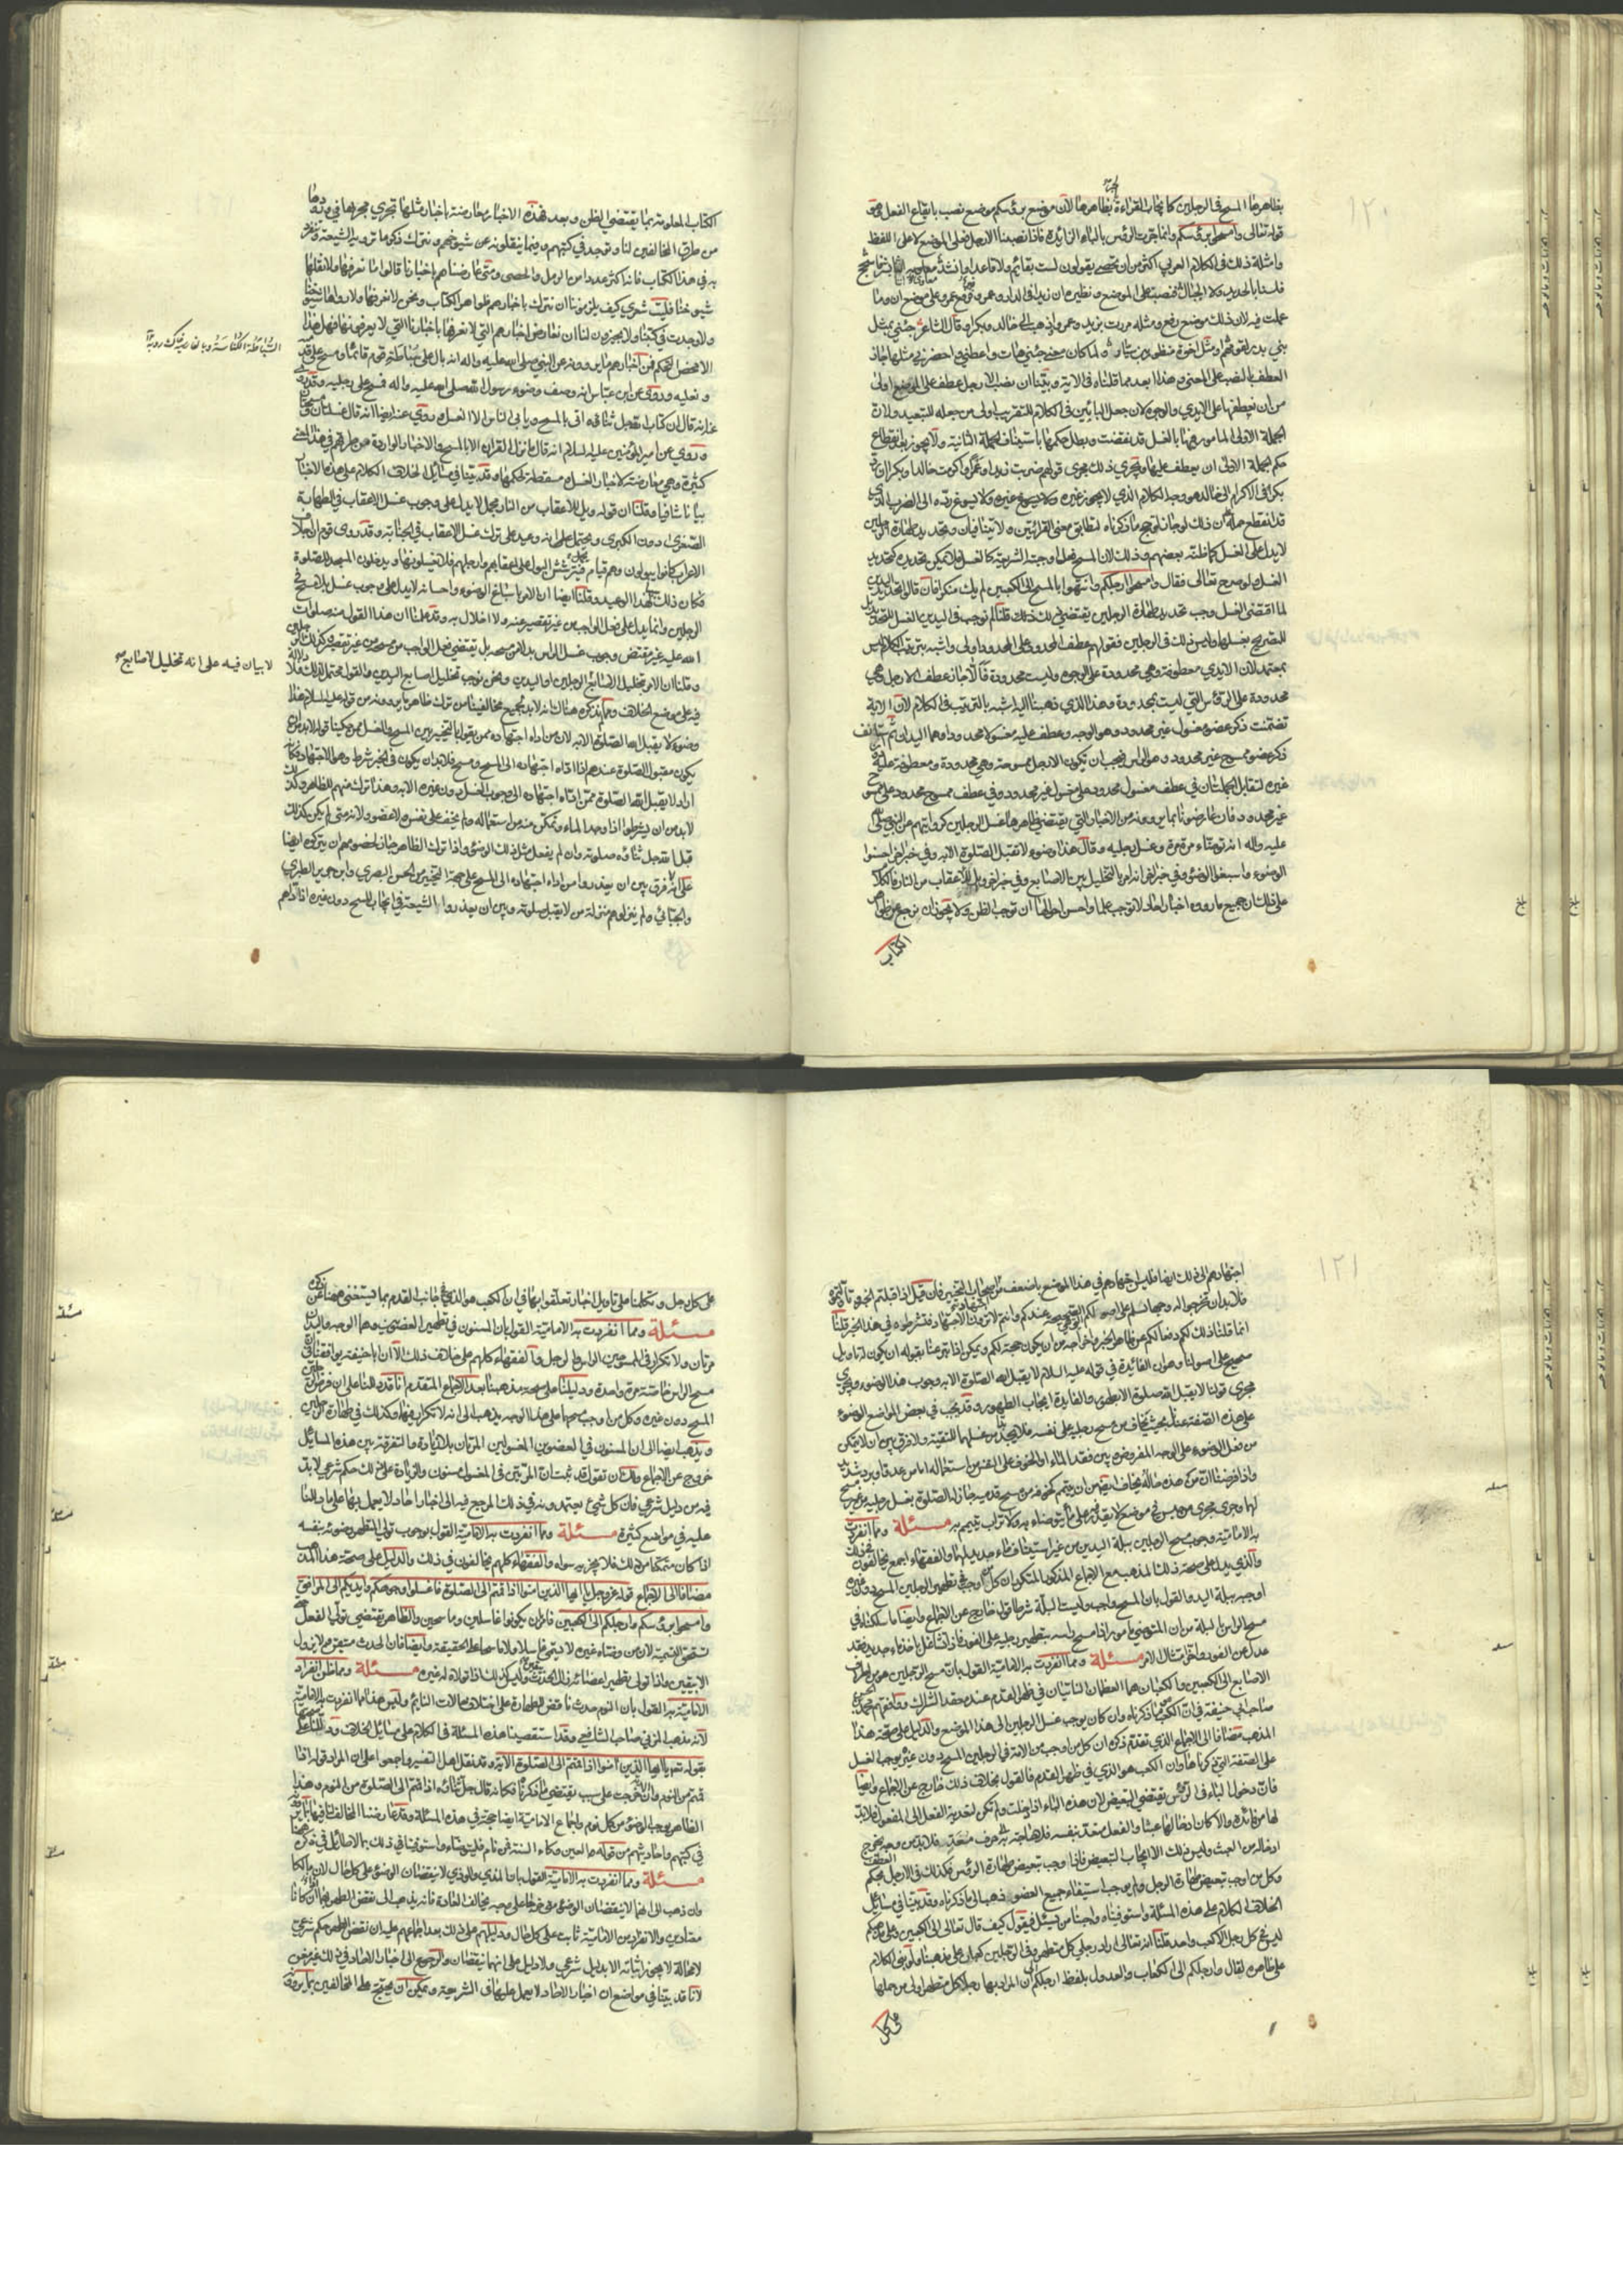 ١٢٠
بظاهرها المسح في الرجلين كايجاب القراءة بظاهرها لان موضع برؤسكم موضع نصب بايقاع الفعل
قوله تعالى وامسحوا برؤسكم وانما جرت الرؤس بالباء الزائدة فاذا نصبنا الارجل فعلى الموضع لا على اللفظ
وامثلة ذلك في الكلام العربي اكثر من ان تحصى يقولون لست بقائم ولا قاعدا وانشد
فلسنا بالجبال ولا الحديدا فنصب على الموضع ونظيره ان زيدا في الدار وعمرو فرفع عمرو على موضع ان وما
عملت فيه لان ذلك موضع رفع ومثله مررت بزيد وعمرا وذهبت الى خالد وبكرا وقال الشاعر جئني بمثل
بني بدر لقومهم او مثل اخوة منظور بن سيار ولما كان معنى جئني هات واعطني احضرني مثلهم جاز
العطف بالنصب على المعنى وهذا ابعد مما قلناه في الاية وبينا ان نصب الارجل عطف على الموضع اولى
من ان نعطفها على الايدي والوجوه لان جعل التاثير في الكلام للقريب اولى من جعله للبعيد ولان
الجملة الاولى المامور فيها بالغسل قد نقضت وبطل حكمها باستيناف الجملة الثانية ولا يجوز بعد انقطاع
حكم الجملة الاولى ان يعطف عليها ويجري ذلك مجرى قولهم ضربت زيدا وعمرا واكرمت خالدا وبكرا
بكرا في الاكرام الى خالد هو وجه الكلام الذي لا يجوز غيره ولا يسوغ رده الى الضرب الذي
قد انقطع حكمه
لا يدل على الغسل كما ظنه بعضهم وذلك لان المسح فعل اوجبته الشريعة كالغسل فلا ينكر تحديده كتحديد
الغسل ولو صرح تعالى فقال وامسحوا ارجلكم وانتهوا بالمسح الى الكعبين لم يك منكرا فان قالوا تحديد اليدين
لما اقتضى الغسل وجب تحديد طهارة الرجلين يقتضي ذلك قلنا لم نوجب في اليدين الغسل للتحديد بل
للتصريح بغسلها وليس ذلك في الرجلين فقولهم عطف المحدود على المحدود اولى واشبه بترتيب الكلام ليس
بمعتمد لان الايدي معطوفة وهي محدودة على الوجوه وليست محدودة فالا جاز عطف الارجل وهي
محدودة على الرؤس التي ليست بمحدودة وهذا الذي ذهبنا اليه اشبه بالترتيب في الكلام لان الاية
تضمنت ذكر عضو مغسول غير محدود وهو الوجه وعطف عليه مغسولا محدودا وهما اليدان ثم استانف
ذكر عضو ممسوح غير محدود وهو الراس فيجب ان يكون الارجل ممسوحة وهي محدودة ومعطوفة عليه دون
غيره لتقابل الجملتان في عطف مغسول محدود على مغسول غير محدود وفي عطف ممسوح محدود على ممسوح
غير محدود فان عارضونا بما يروونه من الاخبار التي يقتضي ظاهرها غسل الرجلين كروايتهم عن النبي صلى الله
عليه واله انه توضاء مرة مرة وغسل رجليه وقال هذا وضوء لا تقبل الصلوة الا به وفي خبر اخر احسنوا
الوضوء واسبغوا الوضوء وفي خبر اخر انه امر بالتخليل بين الاصابع وفي خبر اخر ويل للاعقاب من النار فالكلام
على ذلك ان جميع ما رووه اخبار احاد لا توجب علما واحسن احوالها ان توجب الظن ولا يجوز ان نرجع عن ظواهر
الكتاب
الكتاب المعلومة بما يقتضي الظن وبعد فهذه الاخبار معارضة باخبار مثلها تجري مجراها في
من طرق المخالفين لنا وتوجد في كتبهم وفيما ينقلونه عن شيوخهم ونترك ذكر ما ترويه الشيعة وتنفرد
به في هذا الكتاب فانه اكثر عددا من الرمل والحصى ومتى عارضناهم باخبارنا قالوا ما نعرفها ولا نقلها
شيوخنا فليت شعري كيف يلزموننا ان نترك باخبارهم ظواهر الكتاب ونحن لا نعرفها ولا رواها شيوخنا
ولا وجدت في كتبنا ولا يجيزون لنا ان نعارض اخبارهم التي لا نعرفها باخبارنا التي لا يعرفونها فهل هذا
الا محض التحكم فمن اخبارهم ما يروونه عن النبي صلى الله عليه واله انه بال على سباطة قوم قائما ومسح على قدميه
ونعليه وروى عن ابن عباس انه وصف وضوء رسول الله صلى الله عليه واله فمسح على رجليه
عنه انه قال ان كتاب الله جل ثناؤه اتى بالمسح ويابى الناس الا الغسل وروي عنه ايضا انه قال غسلتان ومسحتان
وروي عن امير المؤمنين عليه السلام انه قال ما نزل القران الا بالمسح والاخبار الواردة من طرقهم في هذا المعنى
كثيرة وهي معارضة لاخبار الغسل ومسقطة لحكمها وقد بينا في مسائل الخلاف الكلام على هذه الاخبار
بيانا شافيا وقلنا ان قوله ويل للاعقاب من النار مجمل لا يدل على وجوب غسل الاعقاب في الطهارة
الصغرى دون الكبرى ويحتمل على انه وعيد على ترك غسل الاعقاب في الجنابة وقد روى قوم ان اجلاف
الاعراب كانوا يبولون وهم قيام فيترشش البول على اعقابهم وارجلهم فلا يغسلونها ويدخلون المسجد للصلوة
فكان ذلك سببا لهذا الوعيد وقلنا ايضا ان الامر باسباغ الوضوء واحسانه لا يدل على وجوب غسل ولا مسح في
الرجلين وانما يدل على فعل الواجب من غير تقصير عنه ولا اخلال به وقد علمنا ان هذا القول منه صلوات
الله عليه غير مقتض وجوب غسل الراس بدلا من مسحه بل يقتضي فعل الواجب من مسحه من غير تقصير وكذلك الرجلين
وقلنا ان الامر بتخليل الاصابع
فيه على موضع الخلاف ومما نذكره هنا
وضوء لا يقبل الله الصلوة الا به
يكون مقبول الصلوة عندهم اذا اداه اجتهاده الى المسح ومسح فلا بد ان يكون في الخبر شرط وهو الاجتهاد فكانه
اراد لا يقبل الله الصلوة ممن اداه اجتهاده الى وجوب الغسل دون غيره الا به وهذا ترك منهم للظاهر وكذلك
لا بد من ان يشرطوا اذا وجد الماء وتمكن منه من استعماله ولم يخف على نفسه ولا عضو ولانه متى لم يكن كذلك
قبل الله جل ثناؤه صلوته وان لم يفعل مثل ذلك الوضوء واذا ترك الظاهر جاز لخصومهم ان يتركوه ايضا
على انه لا فرق بين ان يعذروا من اداه اجتهاده الى المسح على جهة التخيير من الحسن البصري وابن جرير الطبري
والجبائي ولم ينزلوهم منزلة من لا يقبل صلوته وبين ان يعذروا الشيعة في ايجاب المسح دون غيره اذا اداهم
لا بيان فيه على انه تخليل لاصابع
١٢١
اجتهادهم الى ذلك ايضا فليس اجتهادهم في هذا الموضع باضعف من اصحاب التخيير فان قيل اذا قبلتم الخبر وتاولتموه
فلا بد ان تخرجوا له وجها يسلم على اصولكم
انما قلنا ذلك لكم دفعا لكم عن ظاهر الخبر
صحيح على اصولنا وهو ان الفائدة في قوله عليه السلام لا يقبل الله الصلوة الا به وجوب هذا الوضوء ويجري
مجرى قولنا لا يقبل الله صلوة الا بطهور والفائدة ايجاب الطهور وقد يجب في بعض المواضع الوضوء
على هذه الصفة عندنا بحيث يخاف من مسح رجليه على نفسه فلا يجد بدا من غسلهما للتقية ولا فرق بين ان لا يتمكن
من فعل الوضوء على الوجه المفروض وبين فقد الماء او الخوف على النفس من استعماله اما من عدو او برد شديد
واذا فرضنا ان من هذه حاله يخاف
لهما وجرى مجرى من حبس في موضع لا يقدر فيه على ماء يتوضاء به ولا تراب يتيمم به مسئلة ومما انفردت
به الامامية وجوب مسح الرجلين ببلة اليدين من غير استيناف ماء جديد لهما والفقهاء اجمع يخالفون في ذلك
والذي يدل على صحة ذلك المذهب مع الاجماع المذكور
اوجبه ببلة اليد والقول بان المسح واجب وليست البلة شرطا قول خارج عن الاجماع وايضا ما سلكناه في
مسح الراس بالبلة من ان المتوضي مامور اذا مسح راسه بتطهير رجليه على الفور فاذا تشاغل باخذ ماء جديد فقد
عدل عن الفور واخر امتثال الامر مسئلة ومما انفردت به الامامية القول بان مسح الرجلين هو من اطراف
الاصابع الى الكعبين والكعبان هما العظمان الناتيان في ظهر القدم عند معقد الشراك ووافقهم محمد بن الحسن
صاحب ابي حنيفة في ان الكعب ما ذكرناه وان كان يوجب غسل الرجلين الى هذا الموضع والدليل على صحة هذا
المذهب مضافا الى الاجماع الذي تقدم ذكره ان كل من اوجب من الامة في الرجلين المسح دون غيره يوجب المسح
على الصفة التي ذكرناها وان الكعب هو الذي في ظهر القدم فالقول بخلاف ذلك خارج عن الاجماع وايضا
فان دخول الباء في الرؤس يقتضي التبعيض لان هذه الباء اذا دخلت ولم تكن لتعدية الفعل الى المفعول فلا بد
لها من فائدة والا كان ادخالها عبثا والفعل متعد بنفسه فلا حاجة به الى حرف متعد فلا بد من وجه يخرج
ادخاله من العبث وليس ذلك الا ايجاب التبعيض فاذا وجب تبعيض طهارة الرؤس فكذلك في الارجل بحكم العطف
وكل من اوجب تبعيض طهارة الرجل ولم يوجب استيفاء جميع العضو ذهب الى ما ذكرناه وقد بينا في مسائل
الخلاف الكلام على هذه المسئلة واستوفيناه واجبنا من يسئل فيقول كيف قال تعالى الى الكعبين وعلى مذهبكم
ليس في كل رجل الا كعب واحد قلنا انه تعالى اراد رجلي كل متطهر وفي الرجلين كعبان على مذهبنا ولو بنى الكلام
على ظاهره لقال وارجلكم الى الكعاب والعدول بلفظ ارجلكم الى ان المراد بها رجلا كل متطهر اولى من حملها
على كل
على كل رجل وتكلمنا على تاويل اخبار تعلقوا بها في ان الكعب هو الذي في جانب القدم بما يستغنى ههنا عن ذكره
مسئلة ومما انفردت به الامامية القول بان المسنون في تطهير العضوين وهما الوجه واليدان
مرتان ولا تكرار في الممسوحين الراس والرجل والفقهاء كلهم على خلاف ذلك الا ان ابا حنيفة يوافقنا في
مسح الراس خاصة مرة واحدة ودليلنا على صحة مذهبنا بعد الاجماع المتقدم انا قد دللنا على ان فرض الرجلين
المسح دون غيره وكل من اوجب مسحهما على هذا الوجه يذهب الى انه لا تكرار فيهما وكذلك في طهارة الرجلين
ويذهب ايضا الى ان المسنون في العضوين المغسولين المرتان بلا زيادة والتفرقة بين هذه المسائل
خروج عن الاجماع ولك ان تقول قد ثبت ان المرتين في المغسول مسنون والزيادة على ذلك حكم شرعي لا بد
فيه من دليل شرعي فان كل شيء يعتمدونه في ذلك المرجع فيه الى اخبار احاد لا يعمل بها على ما دللنا
عليه في مواضع كثيرة مسئلة ومما انفردت به الامامية القول بوجوب تولي المتطهر وضوئه بنفسه
اذا كان متمكنا من ذلك فلا يجزيه سواه والفقهاء كلهم يخالفون في ذلك والدليل على صحة هذا المذهب
مضافا الى الاجماع قوله عز وجل يا ايها الذين امنوا اذا قمتم الى الصلوة فاغسلوا وجوهكم وايديكم الى المرافق
وامسحوا برؤسكم وارجلكم الى الكعبين فامر بان يكونوا غاسلين وماسحين والظاهر يقتضي تولي الفعل حتى
تستحق التسمية لان من وضاه غيره لا يسمى غاسلا ولا ماسحا على الحقيقة وايضا فان الحدث متيقن ولا يزول
الا بيقين واذا تولى تطهير اعضائه زال الحدث بيقين وليس كذلك اذا تولاه له غيره مسئلة ومما ظن انفراد
الامامية به القول بان النوم حدث ناقض للطهارة على اختلاف حالات النايم وليس هذا مما انفردت به الامامية
لانه مذهب المزني صاحب الشافعي وقد استقصينا هذه المسئلة في الكلام على مسائل الخلاف ودللنا على صحتها
بقوله تعالى يا ايها الذين امنوا اذا قمتم الى الصلوة الاية وقد نقل اهل التفسير واجمعوا على ان المراد قوله اذا
قمتم من النوم وان الاية خرجت على سبب يقتضي ما ذكرناه فكانه قال جل ثناؤه اذا قمتم الى الصلوة من النوم وهذا
الظاهر يوجب الوضوء من كل نوم واجماع الامامية ايضا حجة في هذه المسئلة وقد عارضنا المخالف لنا فيها بما يروونه
في كتبهم واحاديثهم من قوله صلى الله عليه العين وكاء السنة فمن نام فليتوضاء واستوفينا في ذلك ما لا طائل في ذكره هنا
مسئلة ومما انفردت به الامامية القول بان المذي والوذي لا ينقضان الوضوء على كل حال لان مالكا
وان ذهب الى انهما لا ينقضان الوضوء متى خرجا على وجه يخالف العادة فانه يذهب الى نقض الطهر بهما اذا كانا
معتادين والانفراد من الامامية ثابت على كل حال ودليلهم على ذلك بعد اجماعهم عليه ان نقض الطهر حكم شرعي
لا محالة لا يجوز اثباته الا بدليل شرعي ولا دليل على انهما ينقضان والرجوع الى اخبار الاحاد في ذلك غير مغن
لانا قد بينا في مواضع ان اخبار الاحاد لا يعمل عليها في الشريعة ويمكن ان يحتج على المخالفين بما يروونه